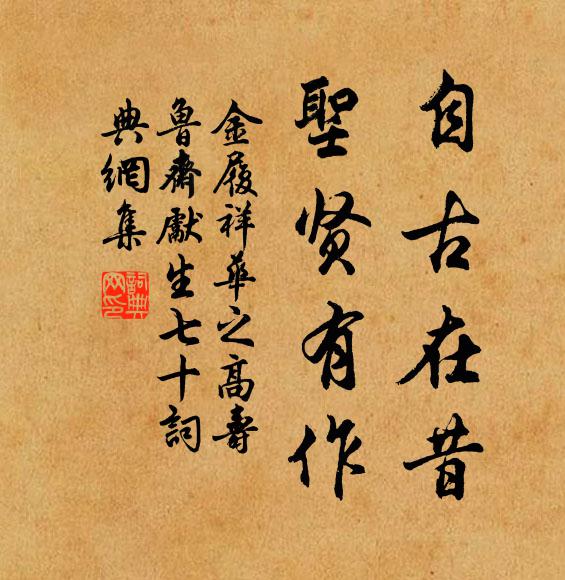 自古在昔
聖贤有作
金履祥華之高壽
魯齋獻生七十詞
典網集
詞典網印